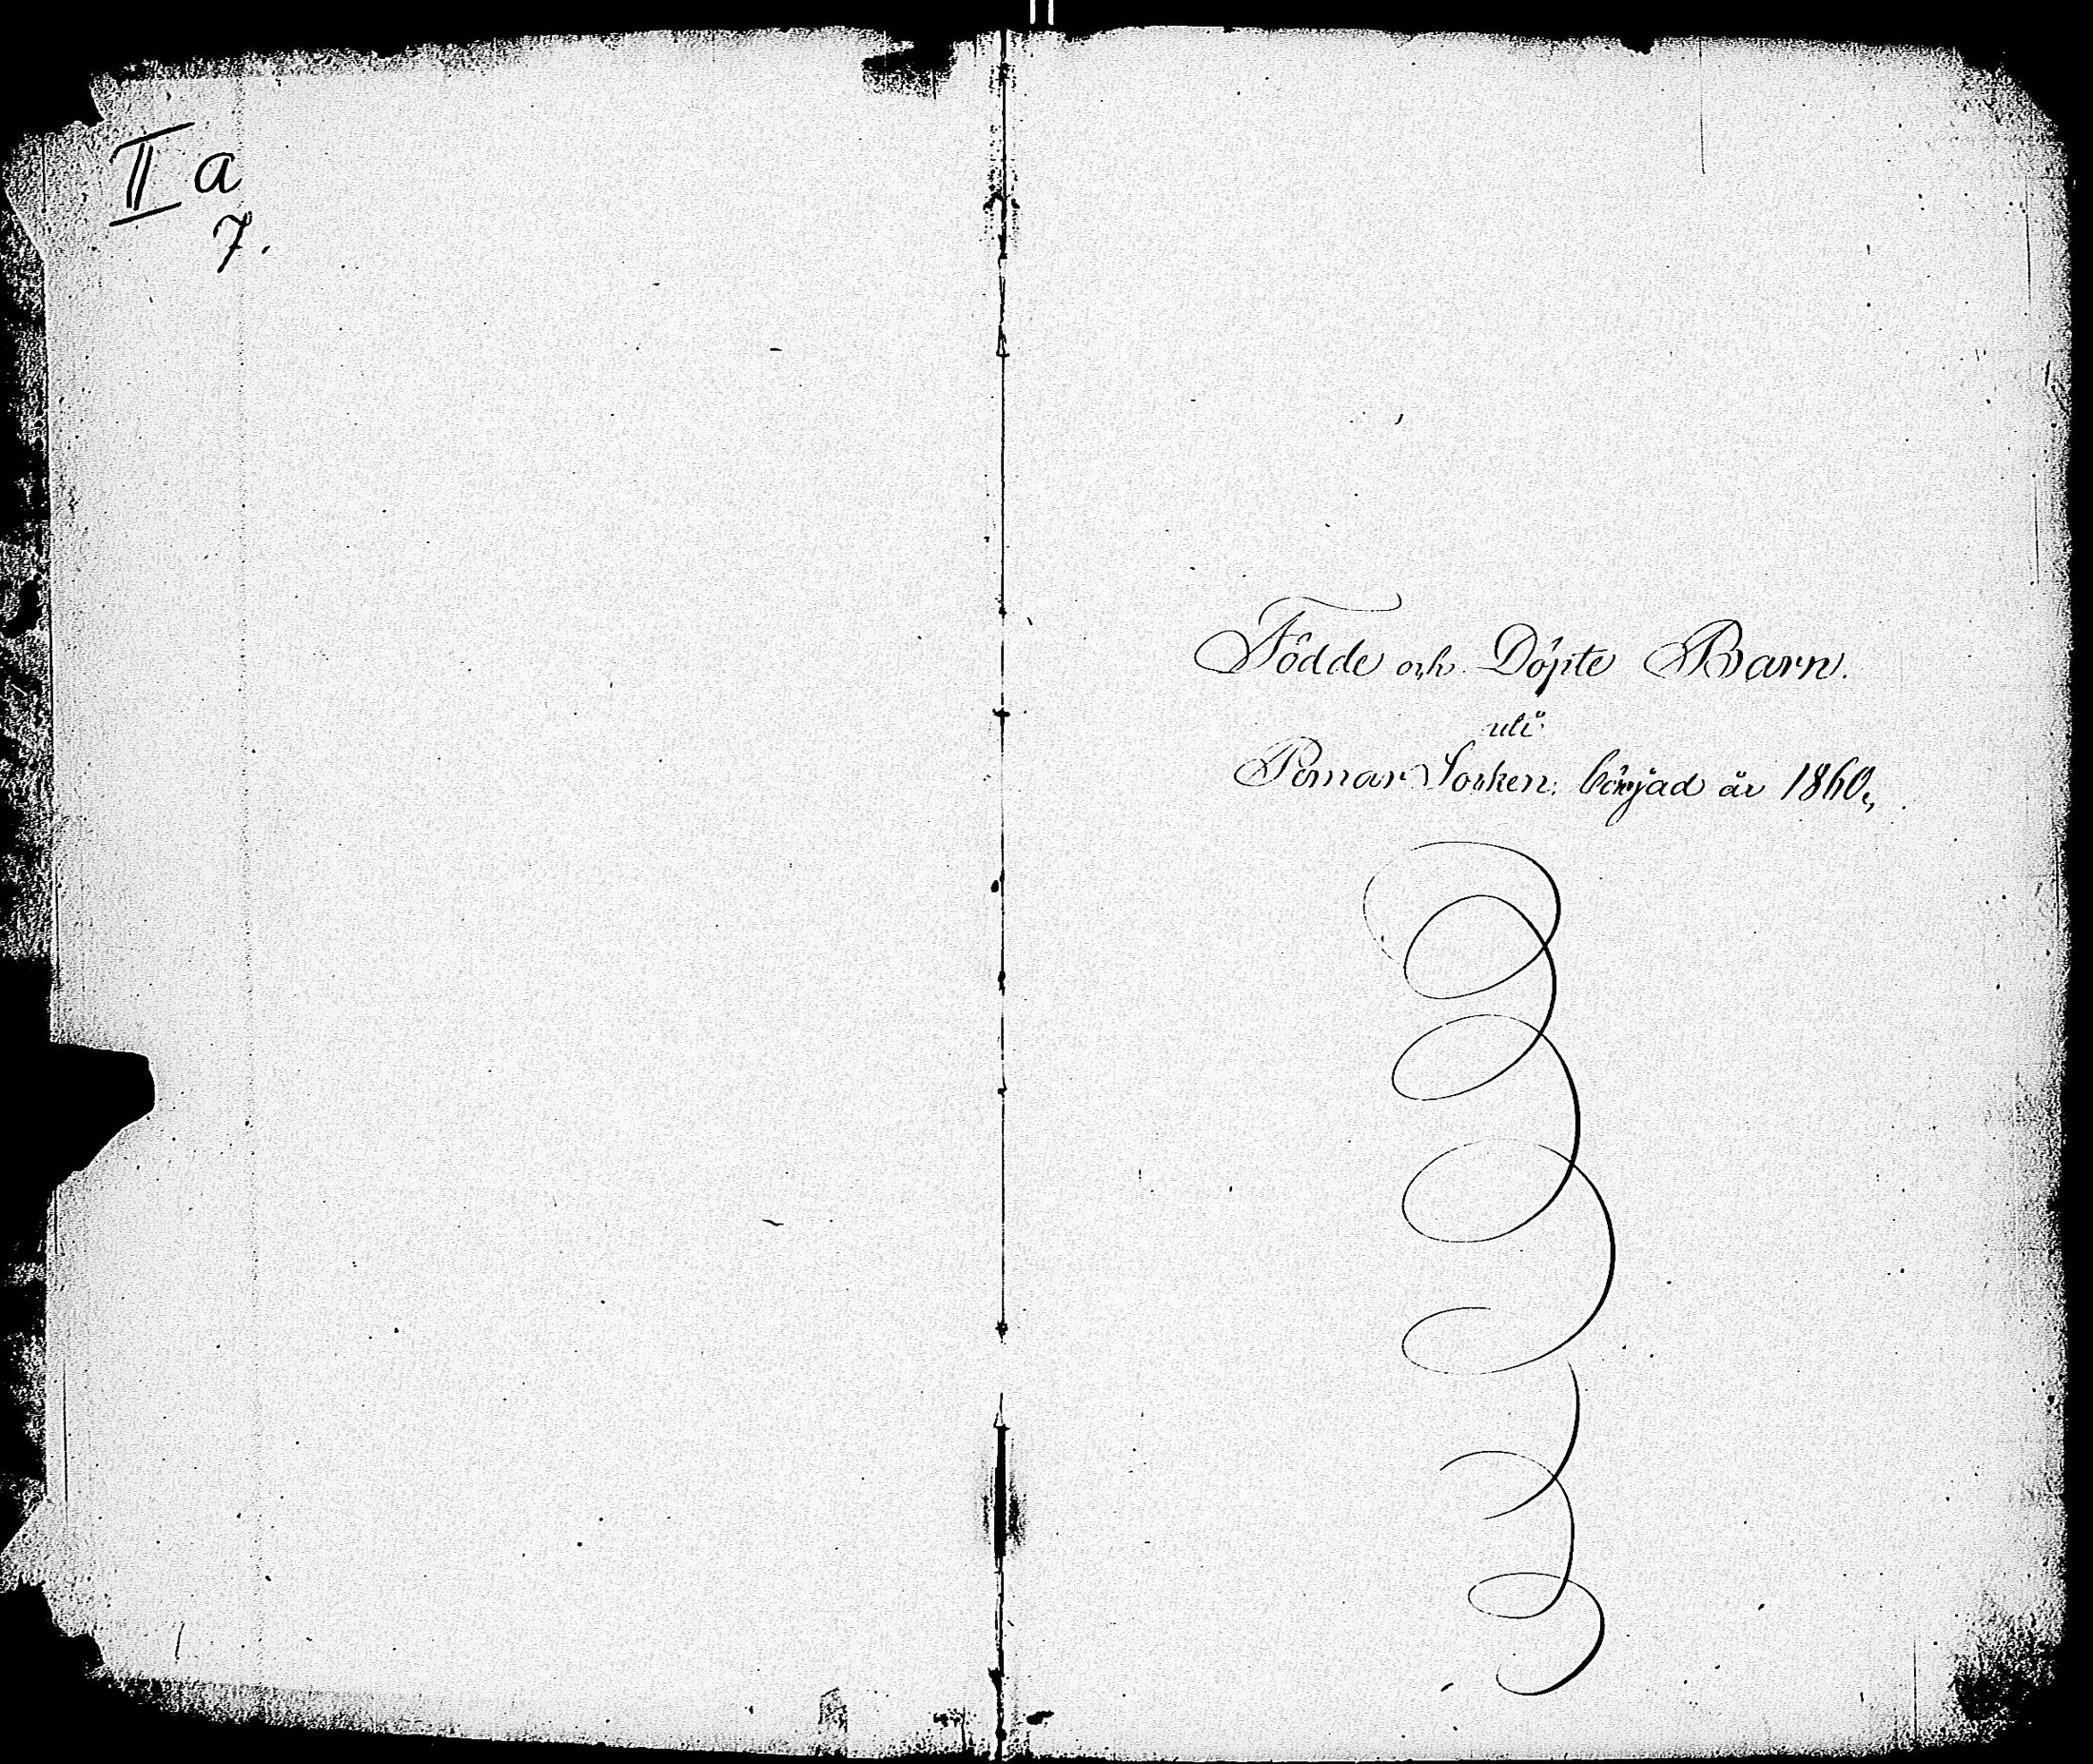 II a
7.
Födde och Döpte Barn.
uti
Pomar Socken, börjad år 1860,